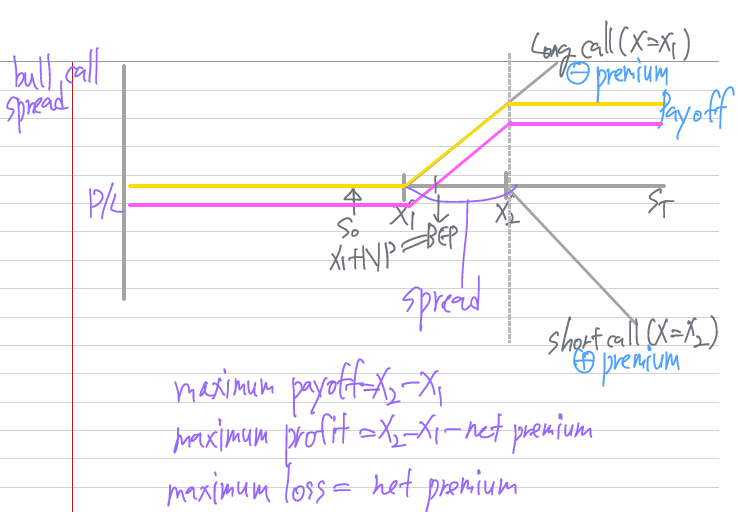 Long call (X=X₁)
⊖ premium
bull call
spread
Payoff
P/L
S₀
X₁
X₂
S_T
X₁+NP = BEP
spread
short call (X=X₂)
⊕ premium
maximum payoff=X₂-X₁
maximum profit =X₂-X₁-net premium
maximum loss = net premium